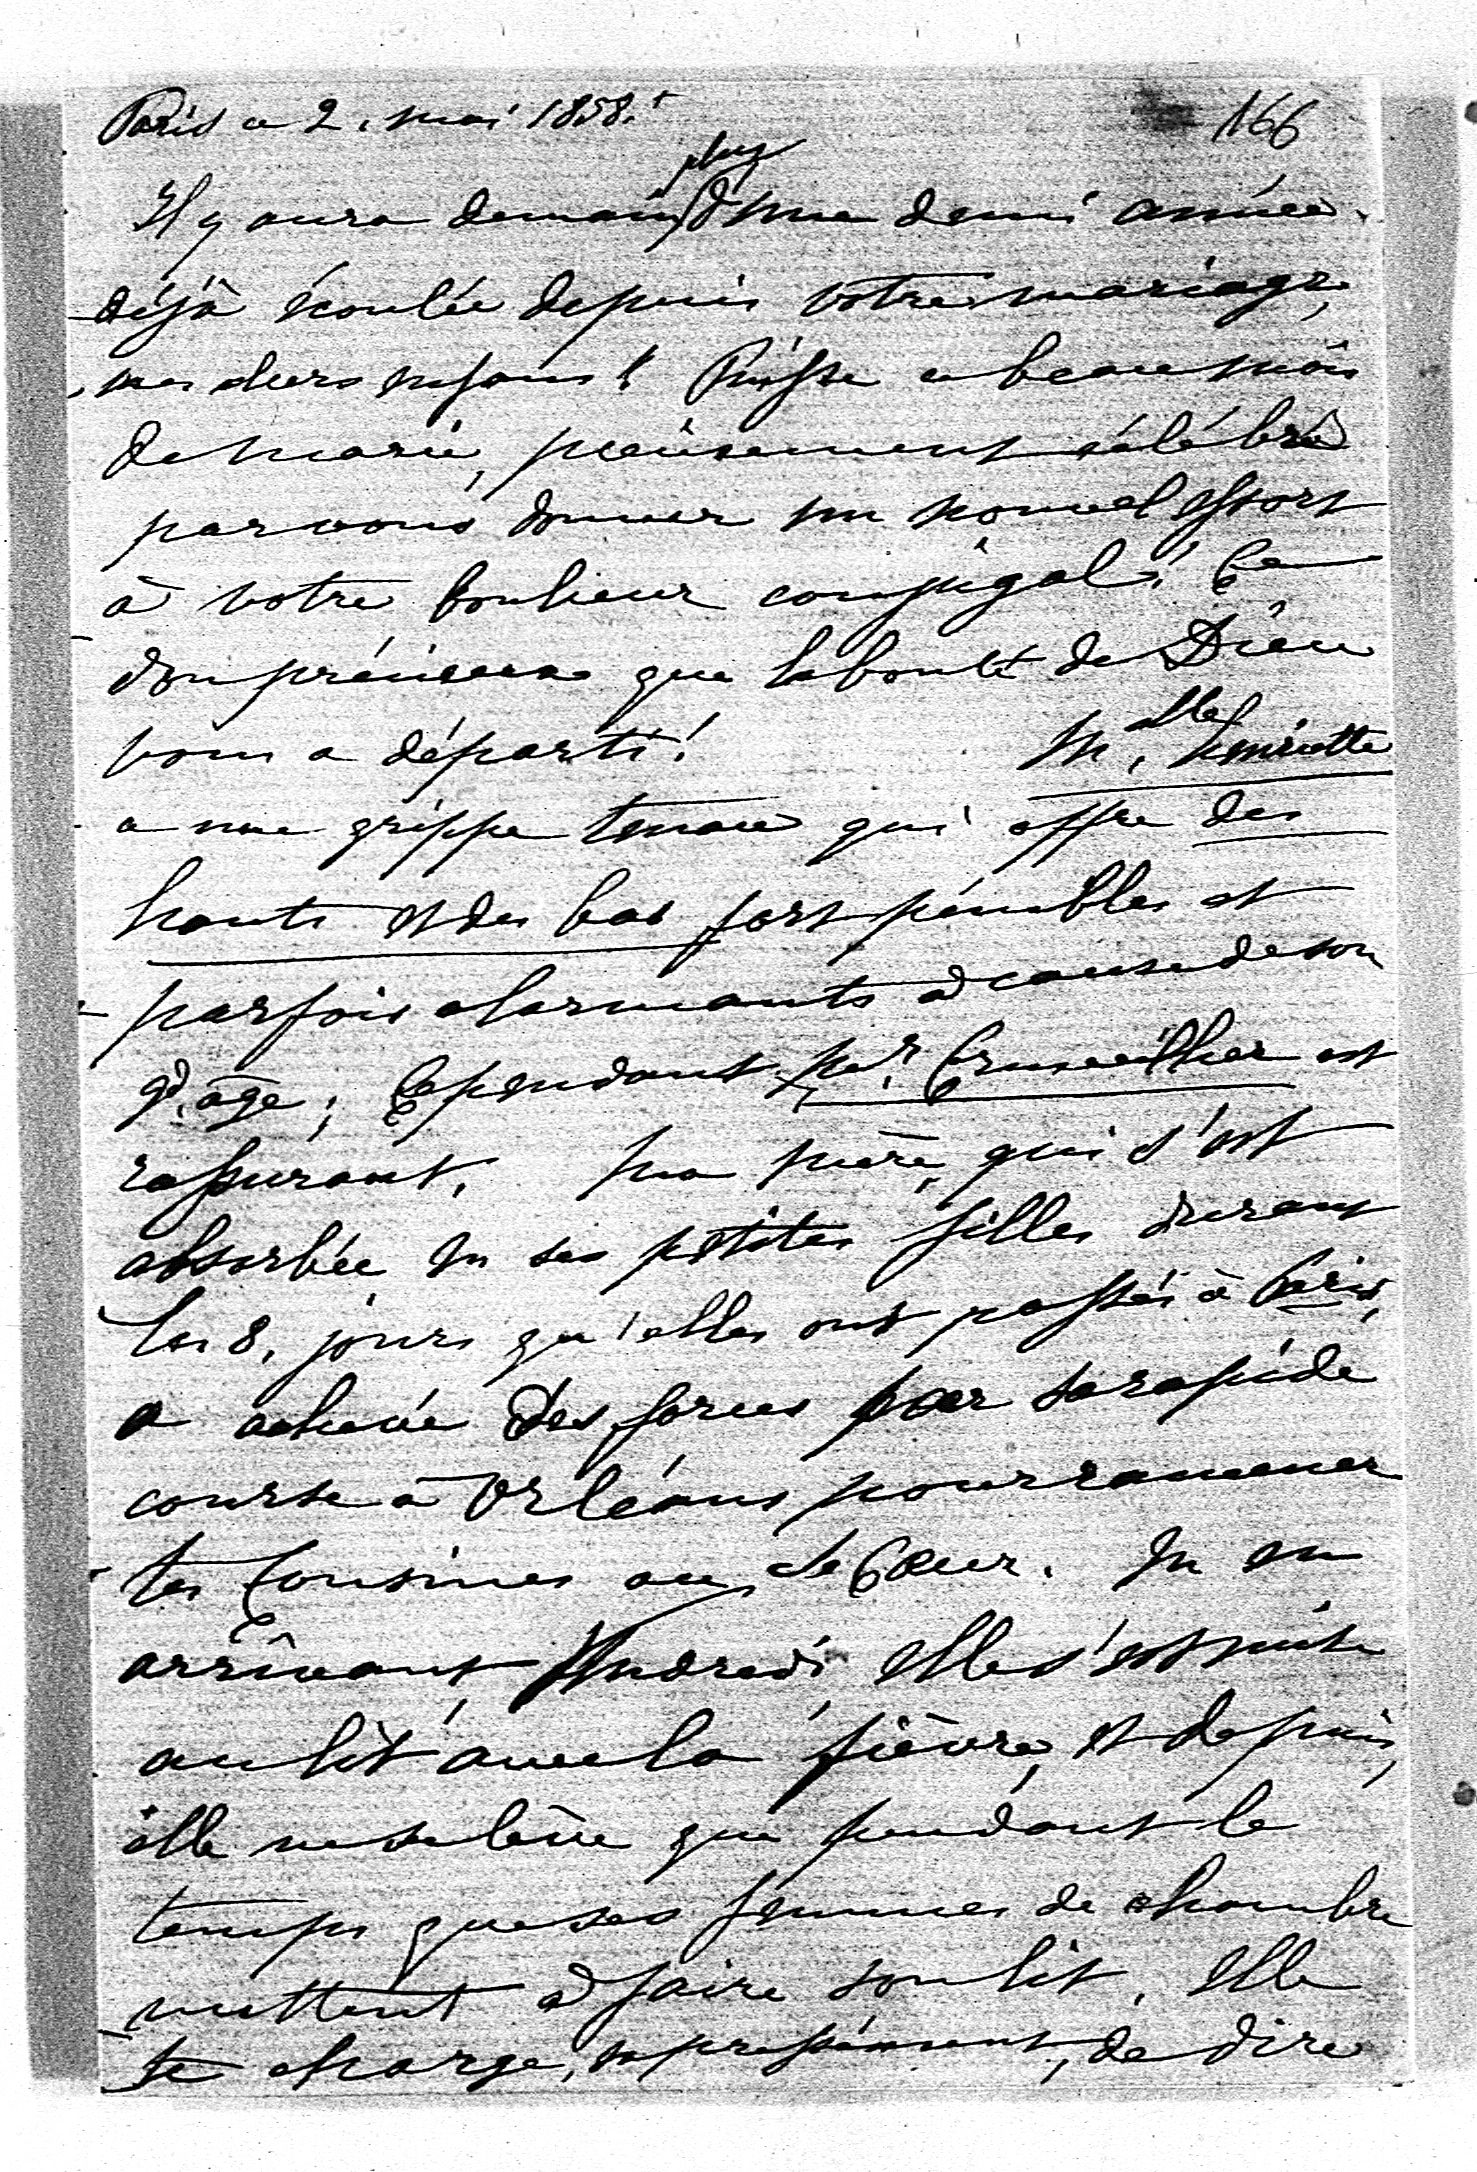 Paris ce 2. mai 1858.
166
plus
Il y aura demain d'une demi année
déjà écoulée depuis votre mariage,
mes chers enfans! Puisse ce beau mois
de Marie, pieusement célébré
par vous donner un nouvel essort
à votre bonheur conjugal! Ce
don précieux que la bonté de Dieu
vous a départi! Mlle Henriette
a une grippe tenace qui offre des
hauts et des bas fort pénibles et
parfois alarmants à cause de son
gd. âge; Cependant, Mr. Cruveilhier est
rassurant. Ma mère, qui s'est
absorbée en ses petites filles durant
les 8. jours qu'elles ont passés à Paris,
a achevé des forces par sa rapide
course à Orléans pour ramener
tes Cousines au S. Coeur. En en
arrivant Vendredi, elle s'est mise
au lit avec la fièvre, et depuis,
elle ne se lève que pendant le
temps que ses femmes de chambre
mettent à faire son lit. Elle
te charge, expressément, de dire